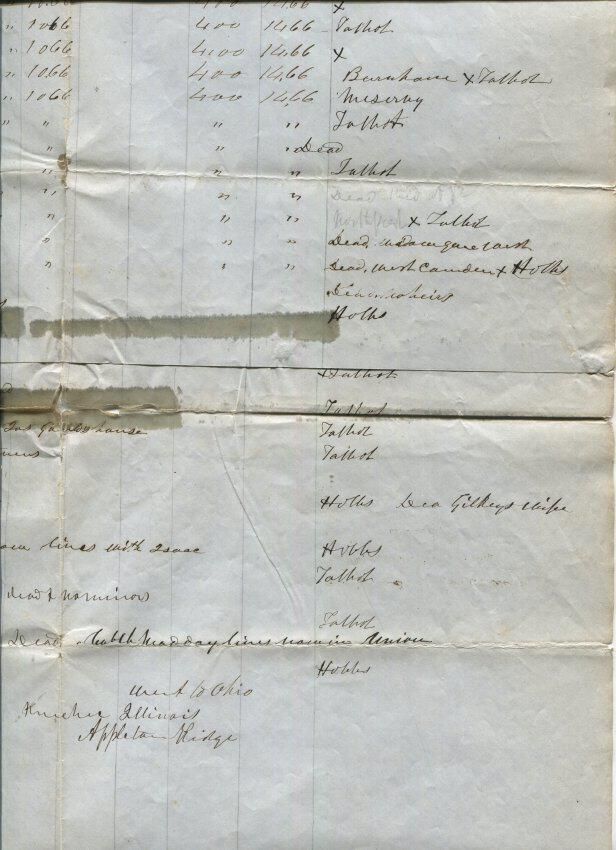 " 10.66 400 14.66 x
" 1066 400 14,66 - Talbot
" 1066 400 14,66 x
" 10,66 400 14,66 Burnham x Talbot
" 1066 400 14,66 Meservy
" " " " Talbot
" " " Dead
" " " Talbot
" " " Dead
" " " x Talbot
" " " Dead,
" " " Dead, West Camden x Hobbs
Dead no heirs
Hobbs
x Talbot
Talbot
house Talbot
Talbot
Hobbs Dea Gilkeys Wife
lives with Isaac Hobbs
Talbot
Dead & no minors
Talbot
Dead Madday lives now in Union
Hobbs
Went to Ohio
Illinois
Appleton Ridge